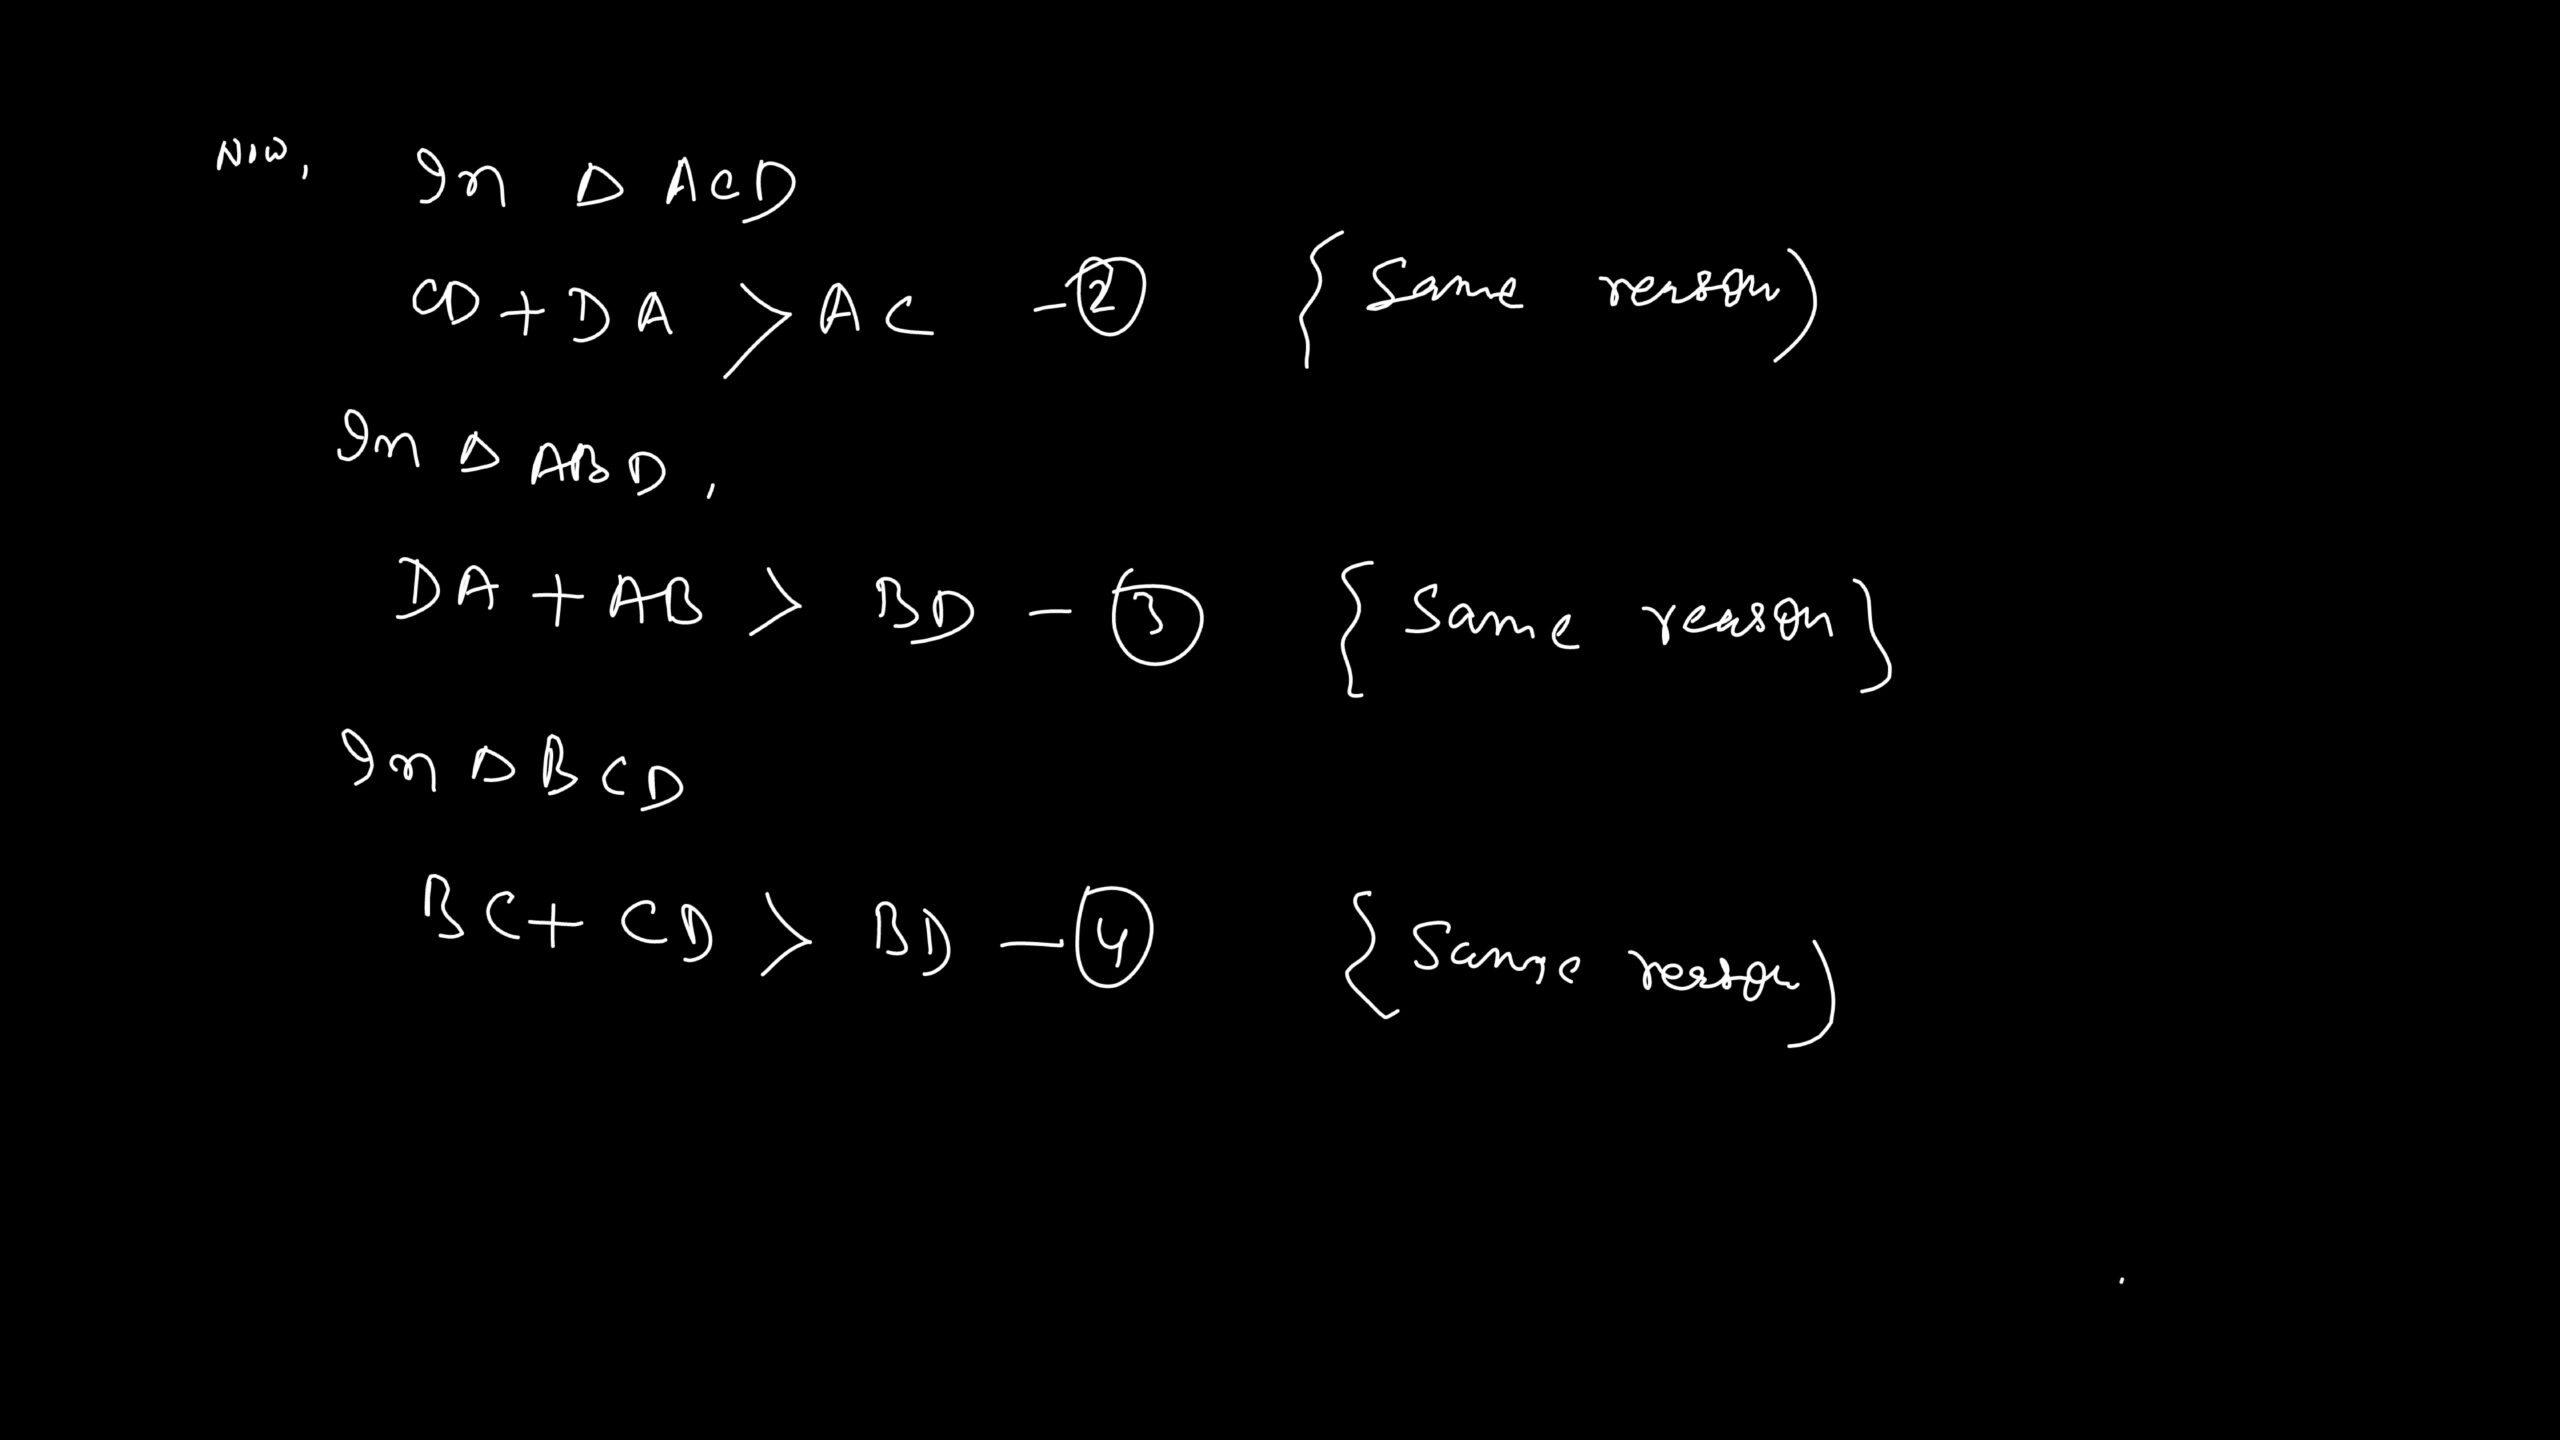 Now, In Δ ACD
CD + DA > AC - ② {Same reason)
In Δ ABD,
DA + AB > BD - ③ {Same reason}
In Δ BCD
BC + CD > BD - ④ {Same reason)